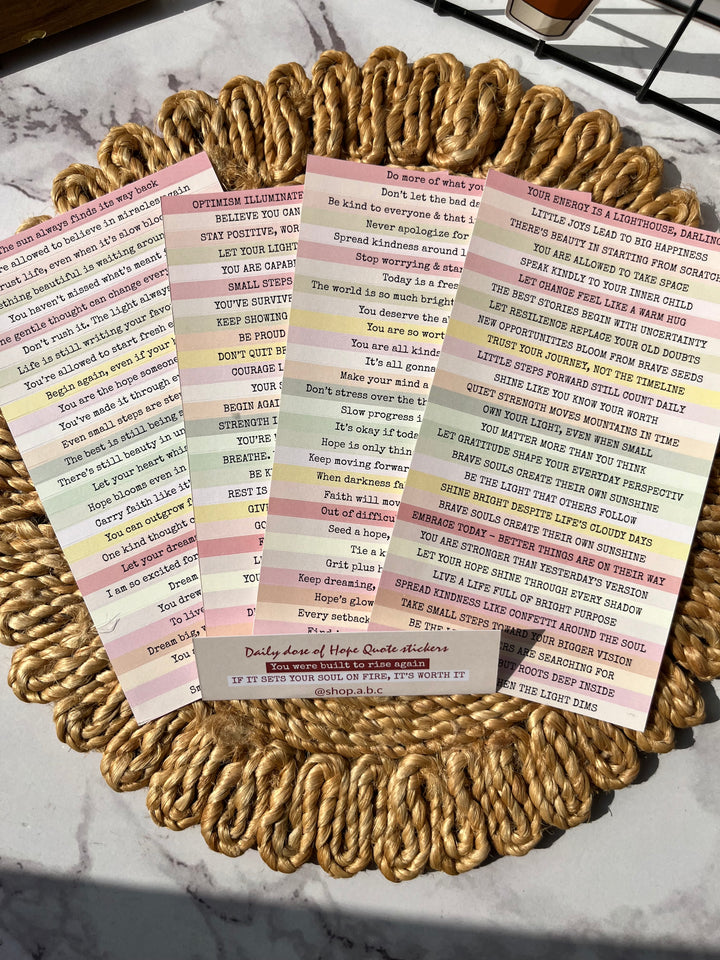 The sun always finds its way back
are allowed to believe in miracles again
trust life, even when it's slow bloo
ething beautiful is waiting around
You haven't missed what's meant
ne gentle thought can change every
Don't rush it. The light always
Life is still writing your favo
You're allowed to start fresh e
Begin again, even if your h
You are the hope someone
You've made it through ev
Even small steps are ste
The best is still being
There's still beauty in un
Let your heart whis
Hope blooms even in
Carry faith like it'
You can outgrow f
One kind thought c
Let your dream
I am so excited for
Dream
You drew
To live
Dream big, w
You
Sm
OPTIMISM ILLUMINATE
BELIEVE YOU CAN
STAY POSITIVE, WOR
LET YOUR LIGHT
YOU ARE CAPAB
SMALL STEPS
YOU'VE SURVIVE
KEEP SHOWING
BE PROUD
DON'T QUIT BE
COURAGE L
YOUR S
BEGIN AGAI
STRENGTH I
YOU'RE
BREATHE.
BE K
REST IS
GIV
GO
F
YOU
D
Do more of what you
Don't let the bad da
Be kind to everyone & that i
Never apologize for
Spread kindness around l
Stop worrying & sta
Today is a fres
The world is so much bright
You deserve the a
You are so wort
You are all kinds
It's all gonna
Make your mind a
Don't stress over the th
Slow progress i
It's okay if toda
Hope is only thin
Keep moving forwar
When darkness fa
Faith will mov
Out of difficu
Seed a hope,
Tie a k
Grit plus h
Keep dreaming,
Hope's glow
Every setback
Find i
YOUR ENERGY IS A LIGHTHOUSE, DARLING
LITTLE JOYS LEAD TO BIG HAPPINESS
THERE'S BEAUTY IN STARTING FROM SCRATCH
YOU ARE ALLOWED TO TAKE SPACE
SPEAK KINDLY TO YOUR INNER CHILD
LET CHANGE FEEL LIKE A WARM HUG
THE BEST STORIES BEGIN WITH UNCERTAINTY
LET RESILIENCE REPLACE YOUR OLD DOUBTS
NEW OPPORTUNITIES BLOOM FROM BRAVE SEEDS
TRUST YOUR JOURNEY, NOT THE TIMELINE
LITTLE STEPS FORWARD STILL COUNT DAILY
SHINE LIKE YOU KNOW YOUR WORTH
QUIET STRENGTH MOVES MOUNTAINS IN TIME
OWN YOUR LIGHT, EVEN WHEN SMALL
YOU MATTER MORE THAN YOU THINK
LET GRATITUDE SHAPE YOUR EVERYDAY PERSPECTIV
BRAVE SOULS CREATE THEIR OWN SUNSHINE
BE THE LIGHT THAT OTHERS FOLLOW
SHINE BRIGHT DESPITE LIFE'S CLOUDY DAYS
BRAVE SOULS CREATE THEIR OWN SUNSHINE
EMBRACE TODAY - BETTER THINGS ARE ON THEIR WAY
YOU ARE STRONGER THAN YESTERDAY'S VERSION
LET YOUR HOPE SHINE THROUGH EVERY SHADOW
LIVE A LIFE FULL OF BRIGHT PURPOSE
SPREAD KINDNESS LIKE CONFETTI AROUND THE SOUL
TAKE SMALL STEPS TOWARD YOUR BIGGER VISION
BE THE ERS ARE SEARCHING FOR
BUT ROOTS DEEP INSIDE
HEN THE LIGHT DIMS
Daily dose of Hope Quote stickers
You were built to rise again
IF IT SETS YOUR SOUL ON FIRE, IT'S WORTH IT
@shop.a.b.c